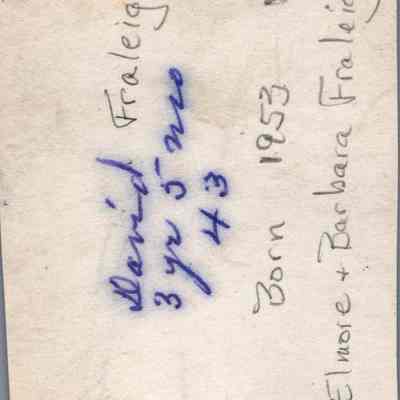 David Fraleig
3 yr 5 mo
43
Born 1953
Elmore + Barbara Fraleig